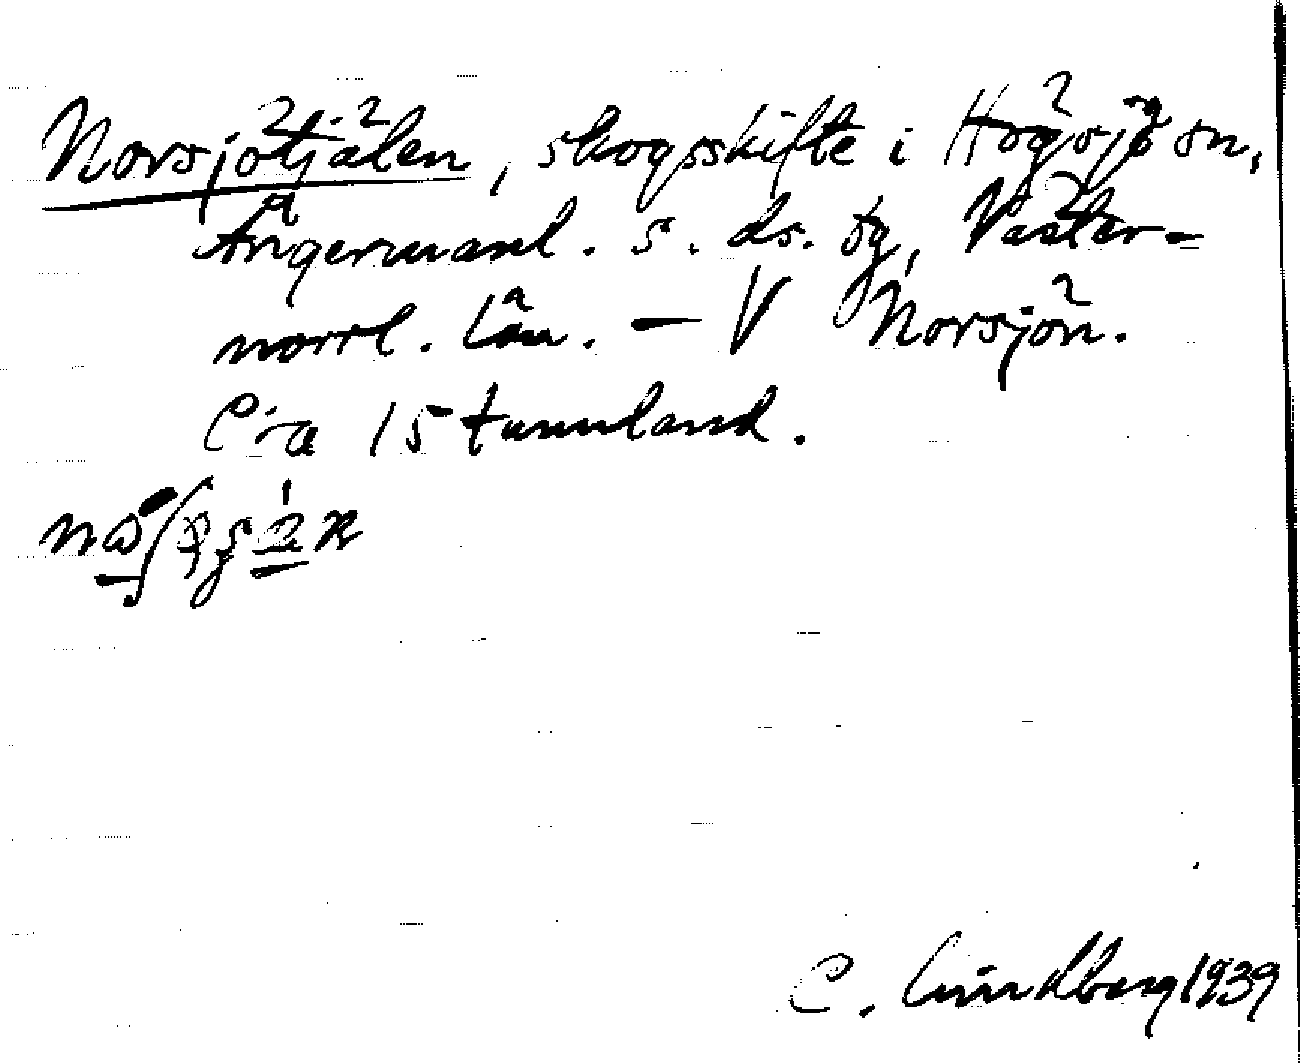 Norsjötjälen, skogsskifte i Högsjö sn,
Ångermanl. s. ds. tg, Väster-
norrl. län. – V Norsjön.
C:a 15 tunnland.
C. Lindberg 1939